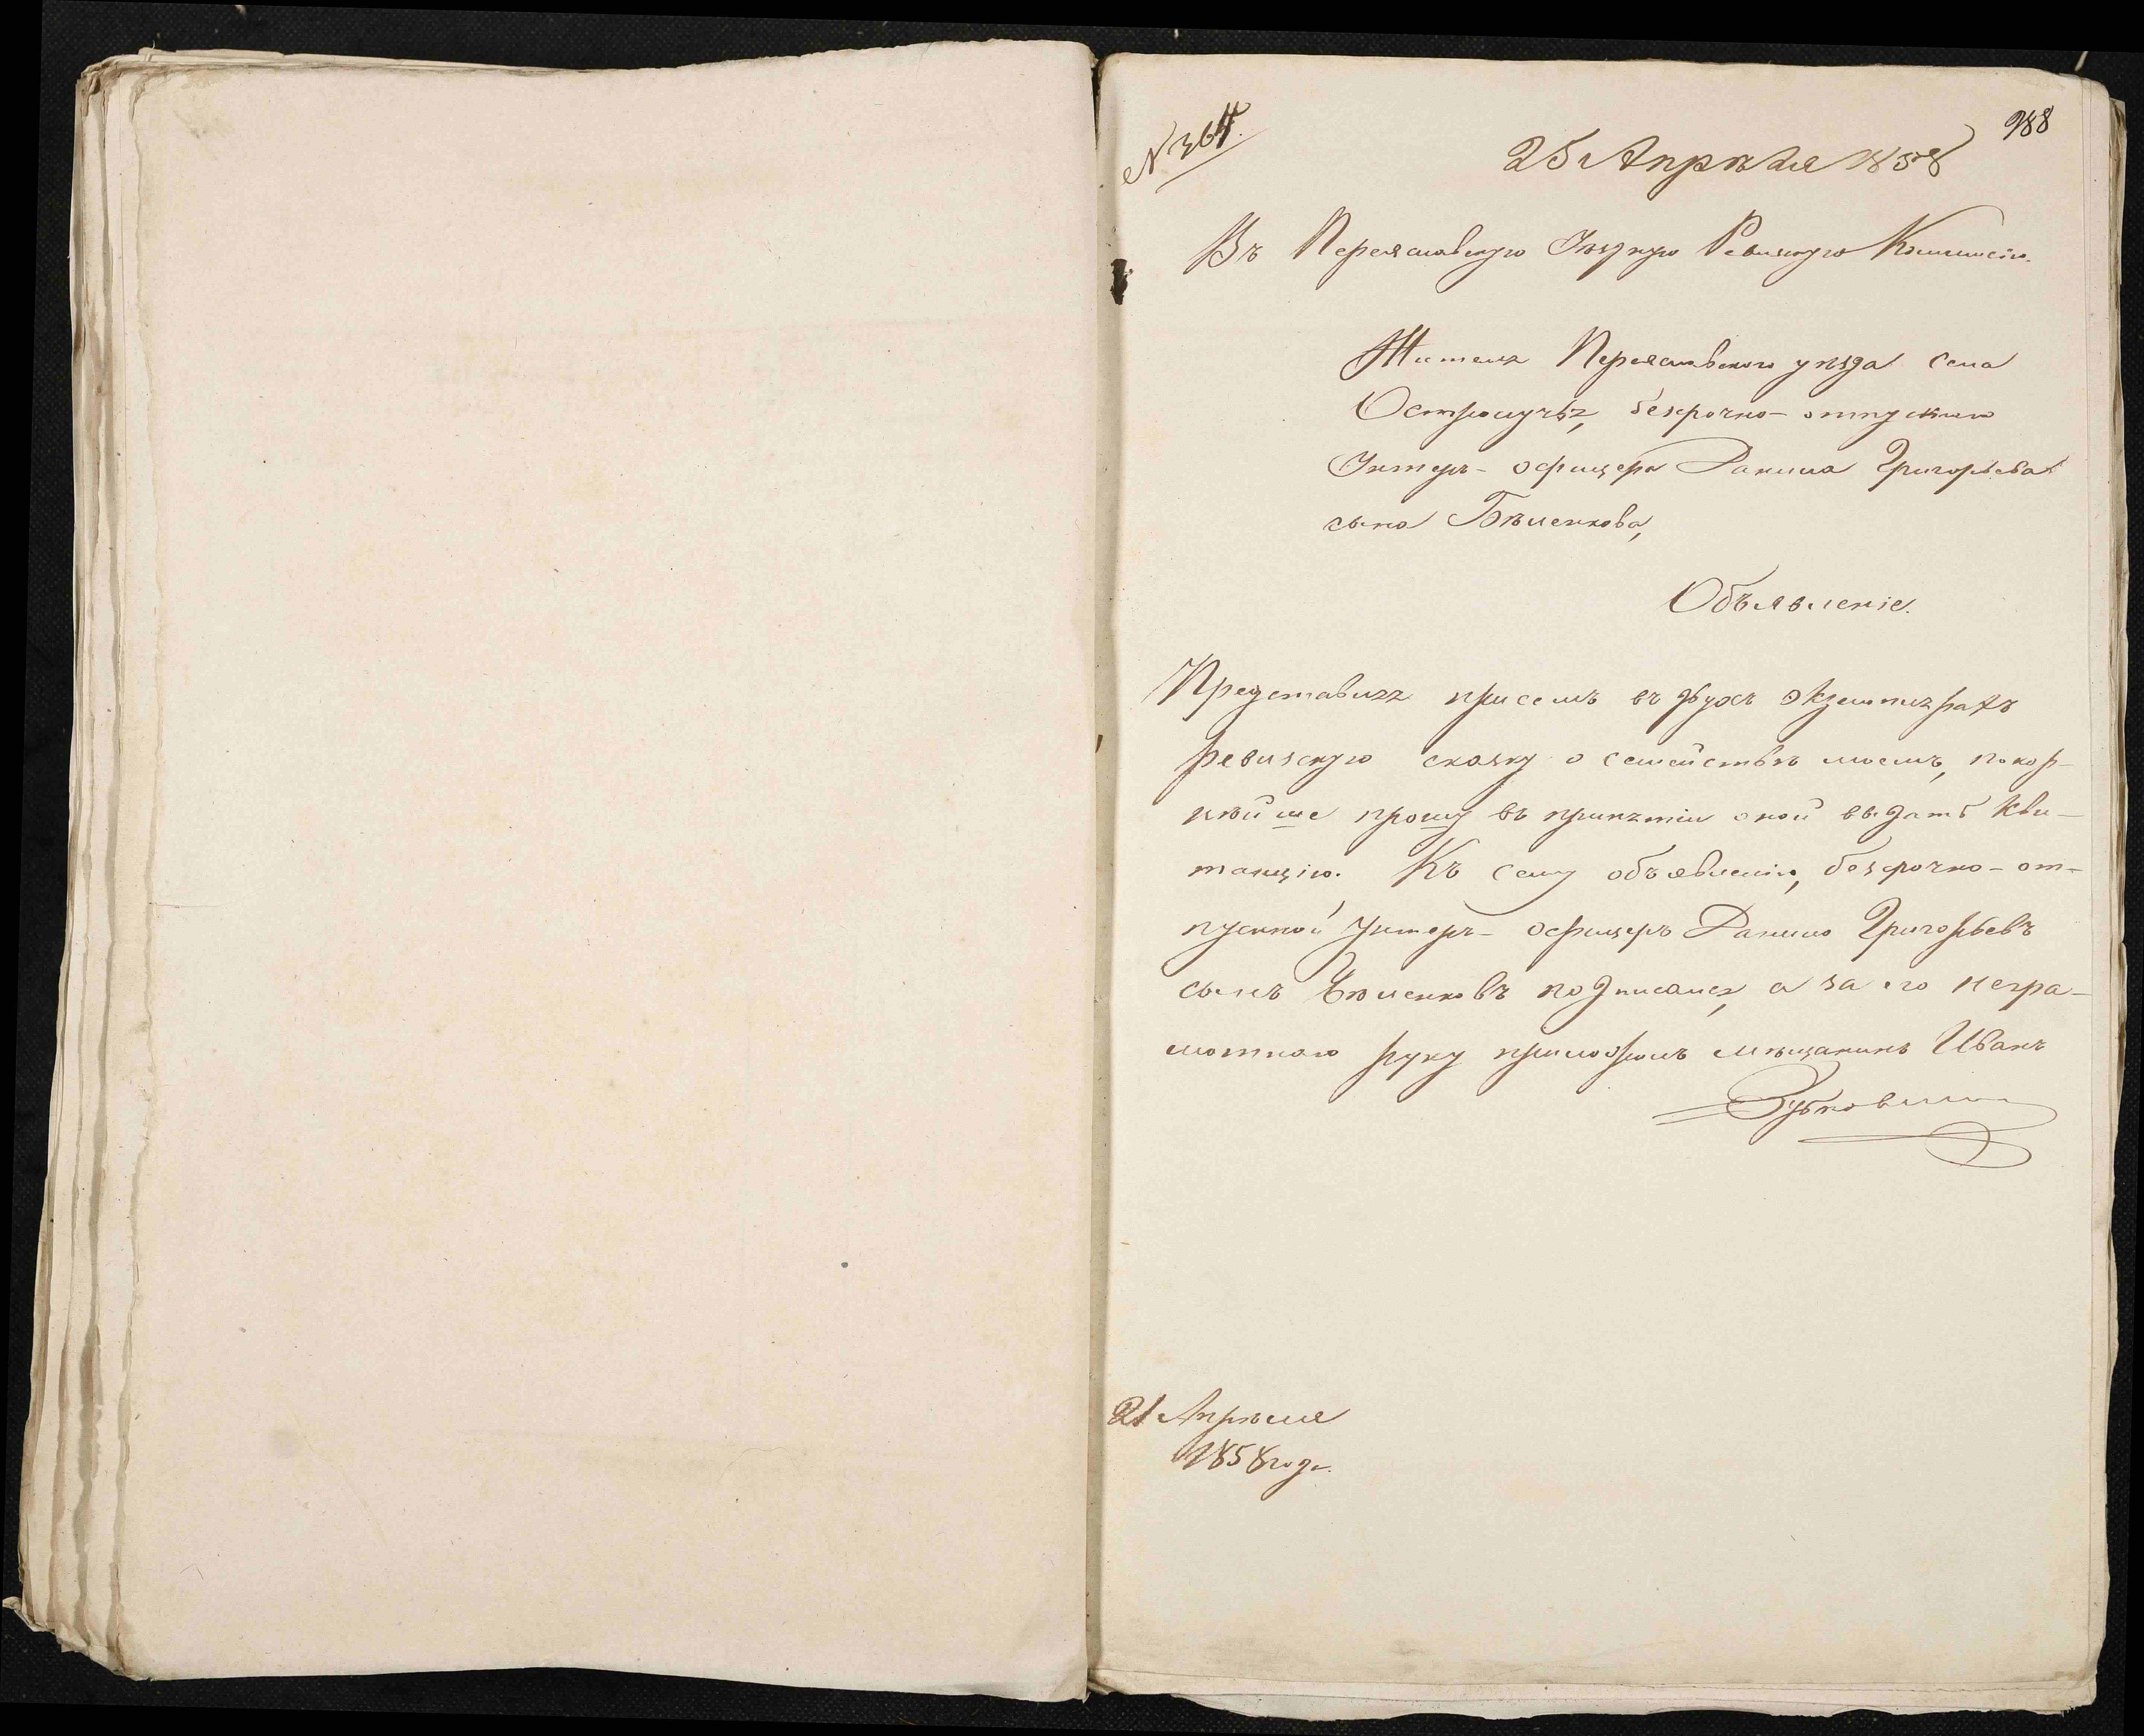 № 364.
988
25 Апрѣля 1858
Въ Переяславскую Уѣздную Ревизскую Коммисію.
Жителя Переяславского уѣзда села
Остролучья, безсрочно-отпускнаго
Унтеръ-офицера Данила Григорьева
сына Бѣленкова,
Объявленіе.
Представляя присемъ въ двухъ экземплярахъ
ревизскую сказку о семействѣ моемъ, покор-
нѣйше прошу въ принятіи оной выдать Кви-
танцію. Къ сему объявленію, безсрочно-от-
пускной Унтеръ-офицеръ Данило Григорьевъ
сынъ Бѣленковъ подписался, а за его негра-
мотнаго руку приложилъ мѣщанинъ Иванъ
21 Апрѣля
1858 года.